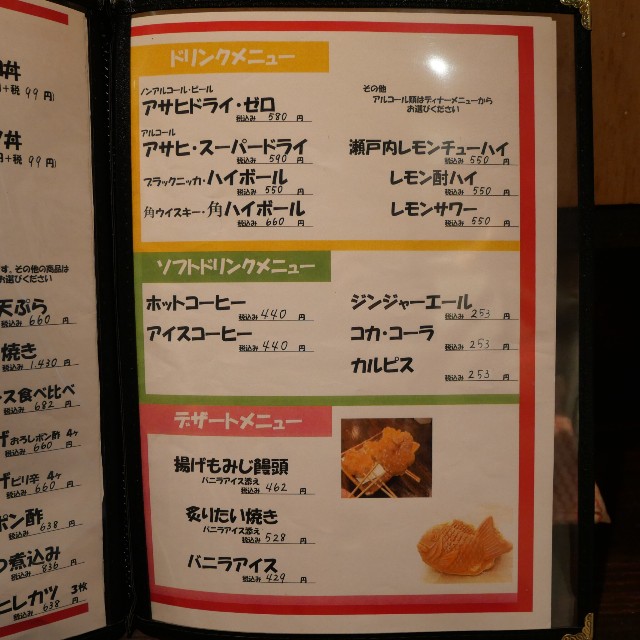 丼
+税 99 円)
丼
円+税 99 円)
す。その他の商品は
お選びください
天ぷら
税込み 660 円
焼き
税込み 1,430 円
ス食べ比べ
税込み 682 円
げおろしポン酢 4ヶ
税込み 660 円
げピリ辛 4ヶ
税込み 660 円
ポン酢
税込み 638 円
つ煮込み
税込み 836 円
ニレカツ 3枚
税込み 638 円
ドリンクメニュー
ノンアルコール・ビール
アサヒドライ・ゼロ
税込み 580 円
アルコール
アサヒ・スーパードライ
税込み 590 円
ブラックニッカ・ハイボール
税込み 550 円
角ウイスキー・角ハイボール
税込み 660 円
その他
アルコール類はディナーメニューから
お選びください
瀬戸内レモンチューハイ
税込み 550 円
レモン酎ハイ
税込み 550 円
レモンサワー
税込み 550 円
ソフトドリンクメニュー
ホットコーヒー
税込み 440 円
アイスコーヒー
税込み 440 円
ジンジャーエール
税込み 253 円
コカ・コーラ
税込み 253 円
カルピス
税込み 253 円
デザートメニュー
揚げもみじ饅頭
バニラアイス添え
税込み 462 円
炙りたい焼き
バニラアイス添え
税込み 528 円
バニラアイス
税込み 429 円